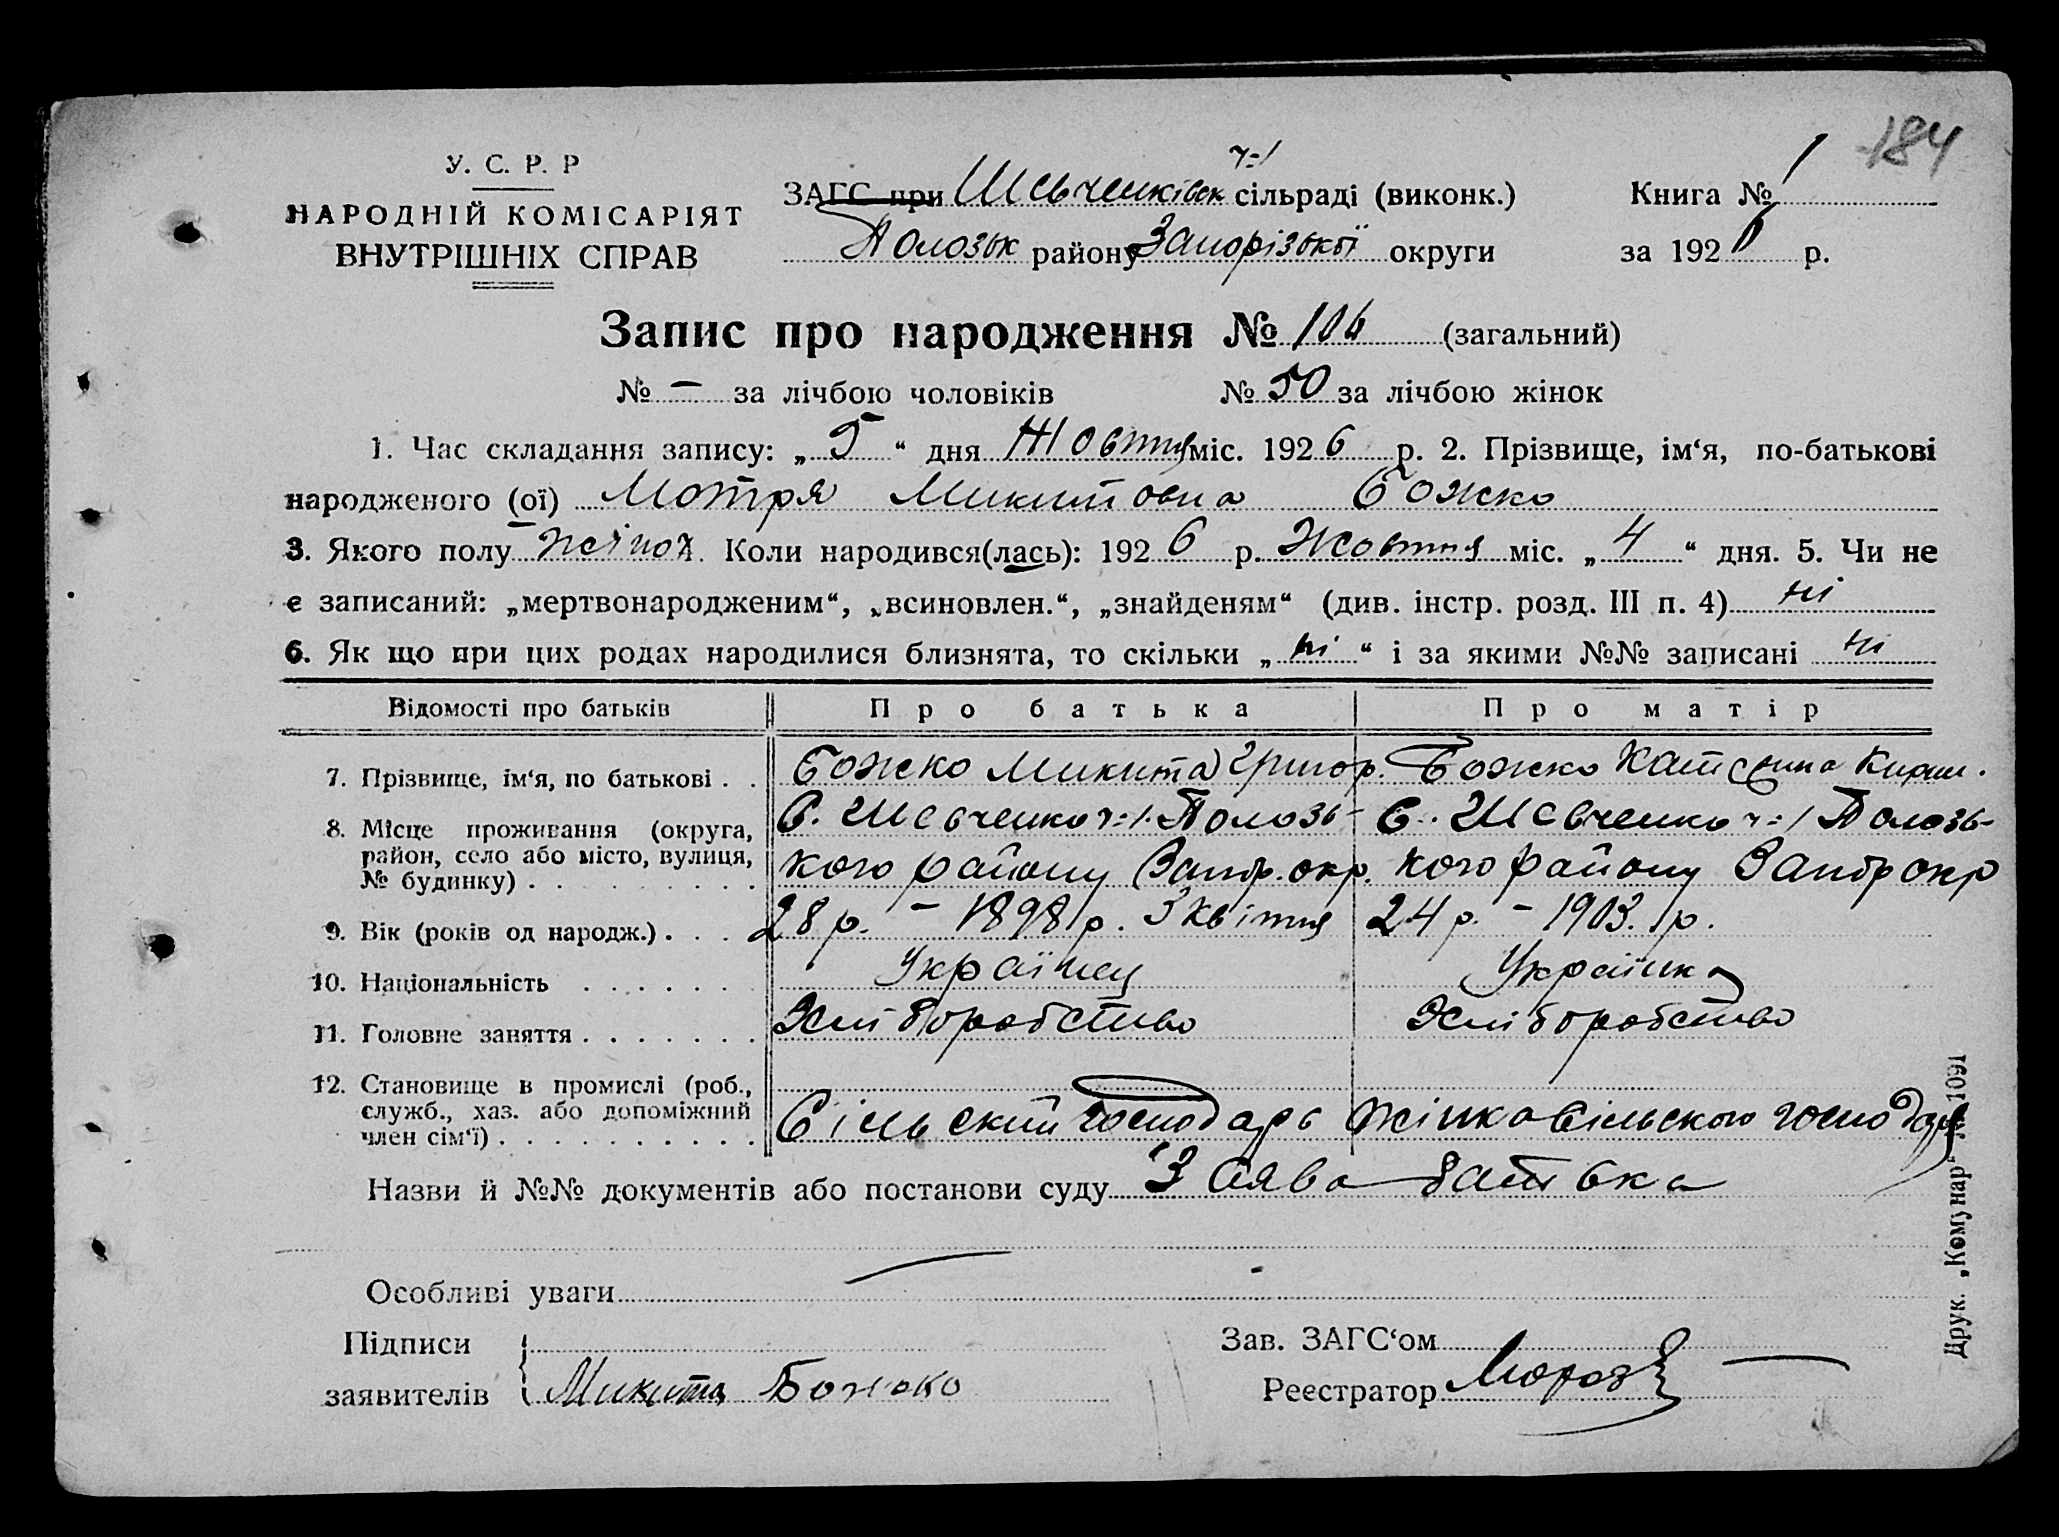 184
У. С. Р. Р
НАРОДНІЙ КОМІСАРІЯТ
ВНУТРІШНІХ СПРАВ
ч=1
ЗАГС при Шевченківск сільраді (виконк.)
Полозьк району Запорізької округи
Книга № 1
за 1926 р.
Запис про народження № 106 (загальний)
№ — за лічбою чоловіків № 50 за лічбою жінок
1. Час складання запису: „ 5 “ дня Жовтня міс. 1926 р. 2. Прізвище, ім‘я, по-батькові
народженого (ої) Мотря Микитовна Божко
3. Якого полу жіноч. Коли народився(лась): 1926 р. Жовтня міс. „ 4 “ дня. 5. Чи не
є записаний: „мертвонародженим“, „всиновлен.“, „знайденям“ (див. інстр. розд. III п. 4) ні
6. Як що при цих родах народилися близнята, то скільки „ ні “ і за якими №№ записані ні
Відомості про батьків Про батька Про матір
7. Прізвище, ім‘я, по батькові . . Божко Микита Григор. Божко Катерина
8. Місце проживання (округа, район, село або місто, вулиця, № будинку) . . . . . . . . .
С. Шевченко ч=1. Полозь- С. Шевченко ч=1 Полозь-
кого району Запор. окр. кого району Запор окр
9. Вік (років од народж.) . . . 28 р. – 1898 р. 3 квітня 24 р. – 1903. р.
10. Національність . . . . . . . Українец Українка
11. Головне заняття . . . . . . . Хліборобство Хліборобство
12. Становище в промислі (роб., служб., хаз. або допоміжний член сім‘ї) . . . . . . . . . . .
Сільський господарь жінка сільского господаря
Назви й №№ документів або постанови суду Заява батька
Особливі уваги
Підписи
заявителів Микита Божко
Зав. ЗАГС‘ом
Реєстратор Мороз
Друк. „Комунар“ 1091